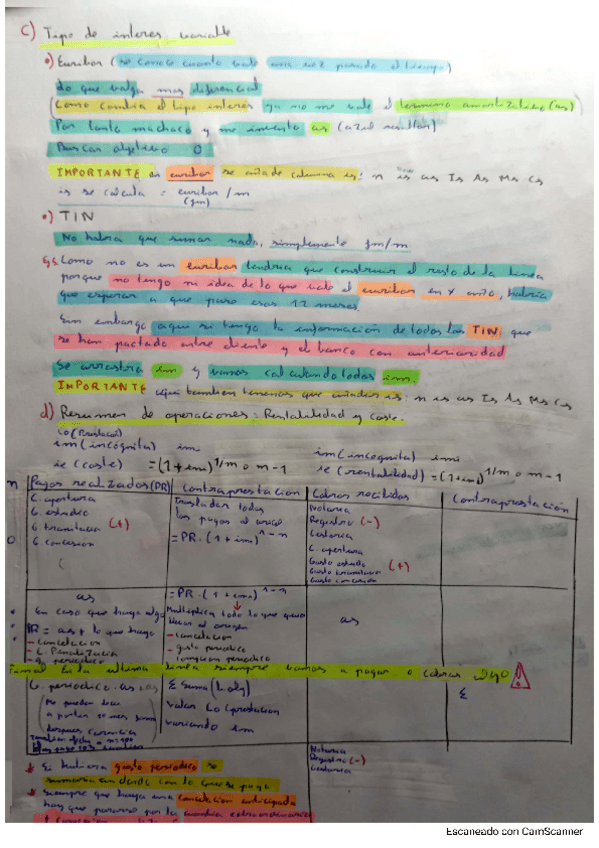 c) Tipo de interes variable
•) Euribor (se conoce cuanto vale una vez pasado el tiempo)
Lo que valga mas diferencial
(Como cambia el tipo interes ya no me vale el termino amortizativo (as)
Por tanto machaco y me invento as (azul resultar)
Buscar objetivo 0
IMPORTANTE en euribor se añade columna is: n is as Is As Ms Cs
is se calcula = euribor/m
(Jm)
•) TIN
No habra que sumar nada, simplemente Jm/m
Ej: Como no es un euribor tendria que construir el resto de la linea
porque no tengo ni idea de lo que vale el euribor en x año, habria
que esperar a que pase esos 12 meses.
Sin embargo aqui si tengo la informacion de todos los TIN que
se han pactado entre cliente y el banco con anterioridad
Se arrastra im y vamos calculando todas im.
IMPORTANTE aqui tambien tenemos que añadir is: n is as Is As Ms Cs
d) Resumen de operaciones: Rentabilidad y coste.
im (incognita) im
im (incognita) im
ie (coste) =(1+im)^1/m o m -1
ie (rentabilidad) =(1+im)^1/m o m -1
n Pagos realizados (PR) Contraprestacion Cobros recibidos Contraprestación
0
G. apertura
G. estudio
G. tramitacion (+)
G. concesion
Trasladar todos
los pagos al origen
= PR·(1+im)^-n
Notaria
Registro (-)
Gestoria
C. apertura
Gasto estudio
Gasto tramitacion (+)
Gasto concesion
as
En caso que haya algo
PR = as + lo que haya
- Cancelacion
- C. Penalizacion
- G. periodico
= PR·(1+im)^-n
Multiplica todo lo que quiera
llevar al origen
- cancelacion
- gasto periodico
as
Final En la ultima linea siempre vamos a pagar o cobrar algo
G. periodico as
Σ Suma
valor Lo (prestacion
variando im
Σ
Notaria
Registro (-)
Gestoria
Si hubiera gasto periodico se
sumaria en donde con lo que se paga
siempre que haya una cancelacion anticipada
hay que pararse por la cuantia extraordinaria
Escaneado con CamScanner